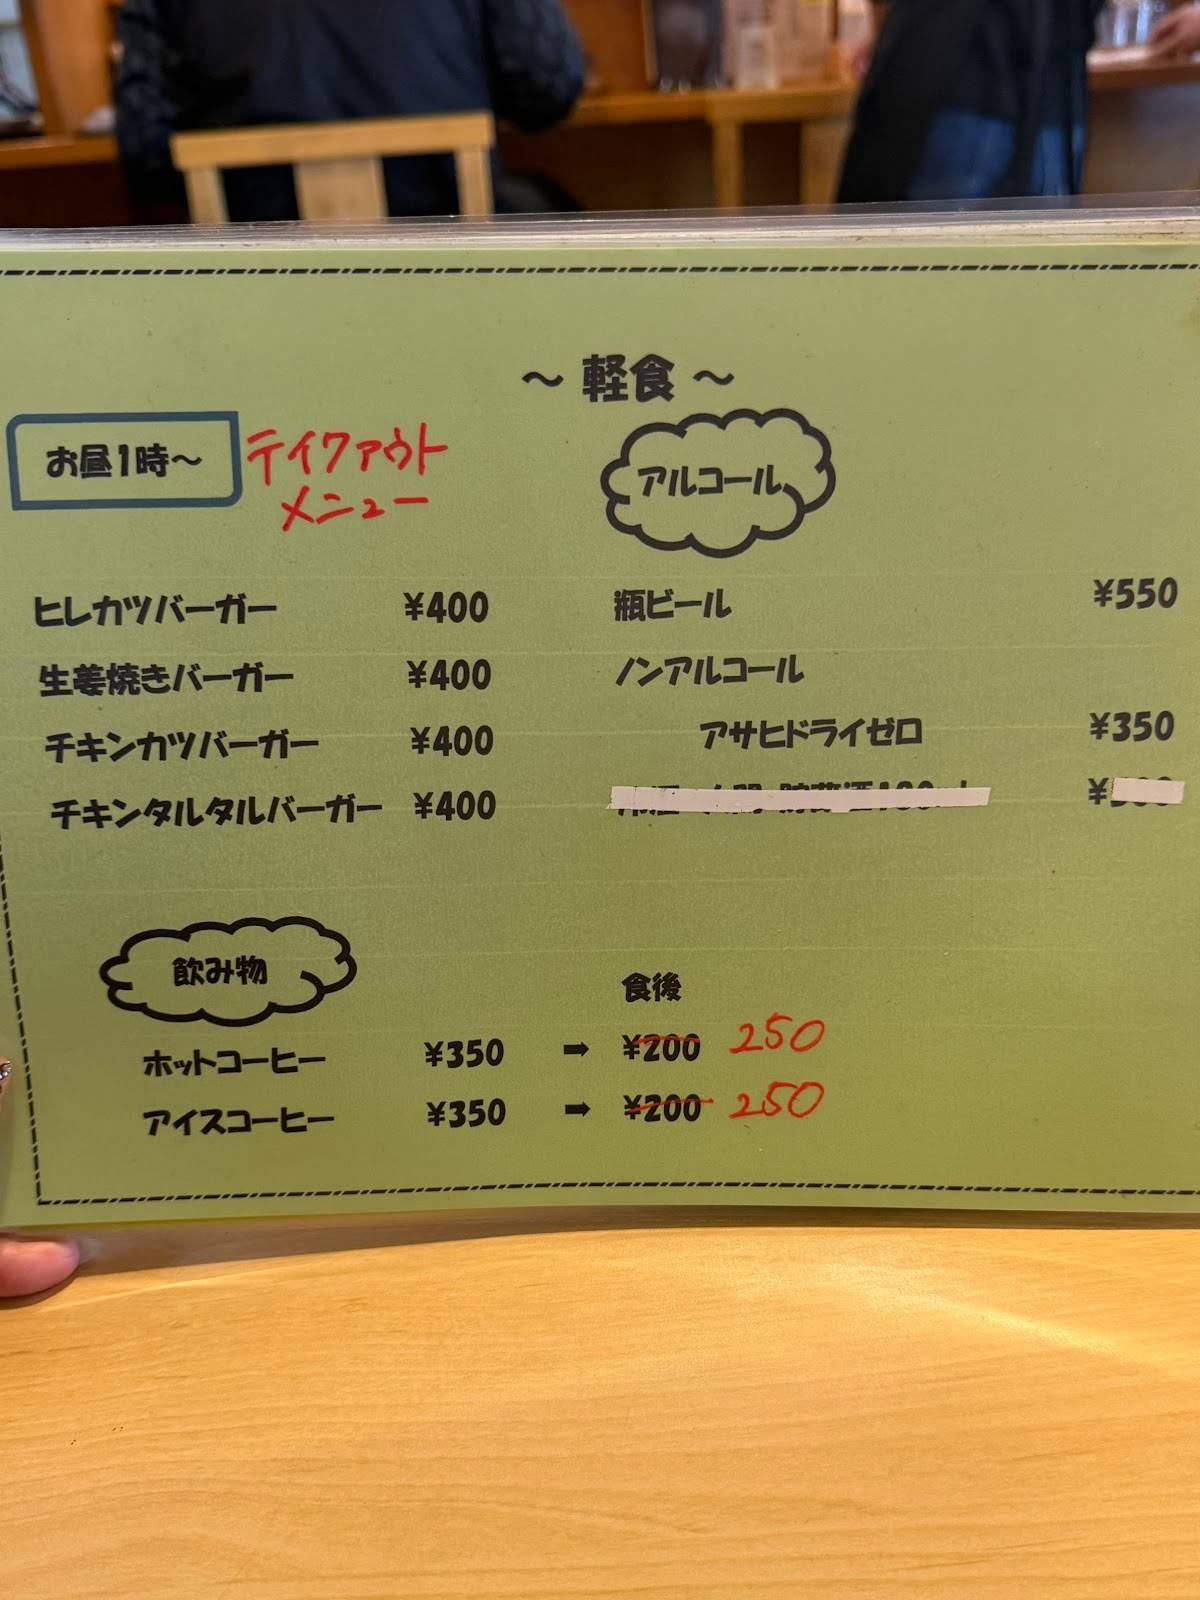 ～ 軽食 ～
お昼1時～
テイクアウト
メニュー
ヒレカツバーガー ¥400
生姜焼きバーガー ¥400
チキンカツバーガー ¥400
チキンタルタルバーガー ¥400
アルコール
瓶ビール ¥550
ノンアルコール
アサヒドライゼロ ¥350
飲み物
食後
ホットコーヒー ¥350 ➡ ¥200 250
アイスコーヒー ¥350 ➡ ¥200 250